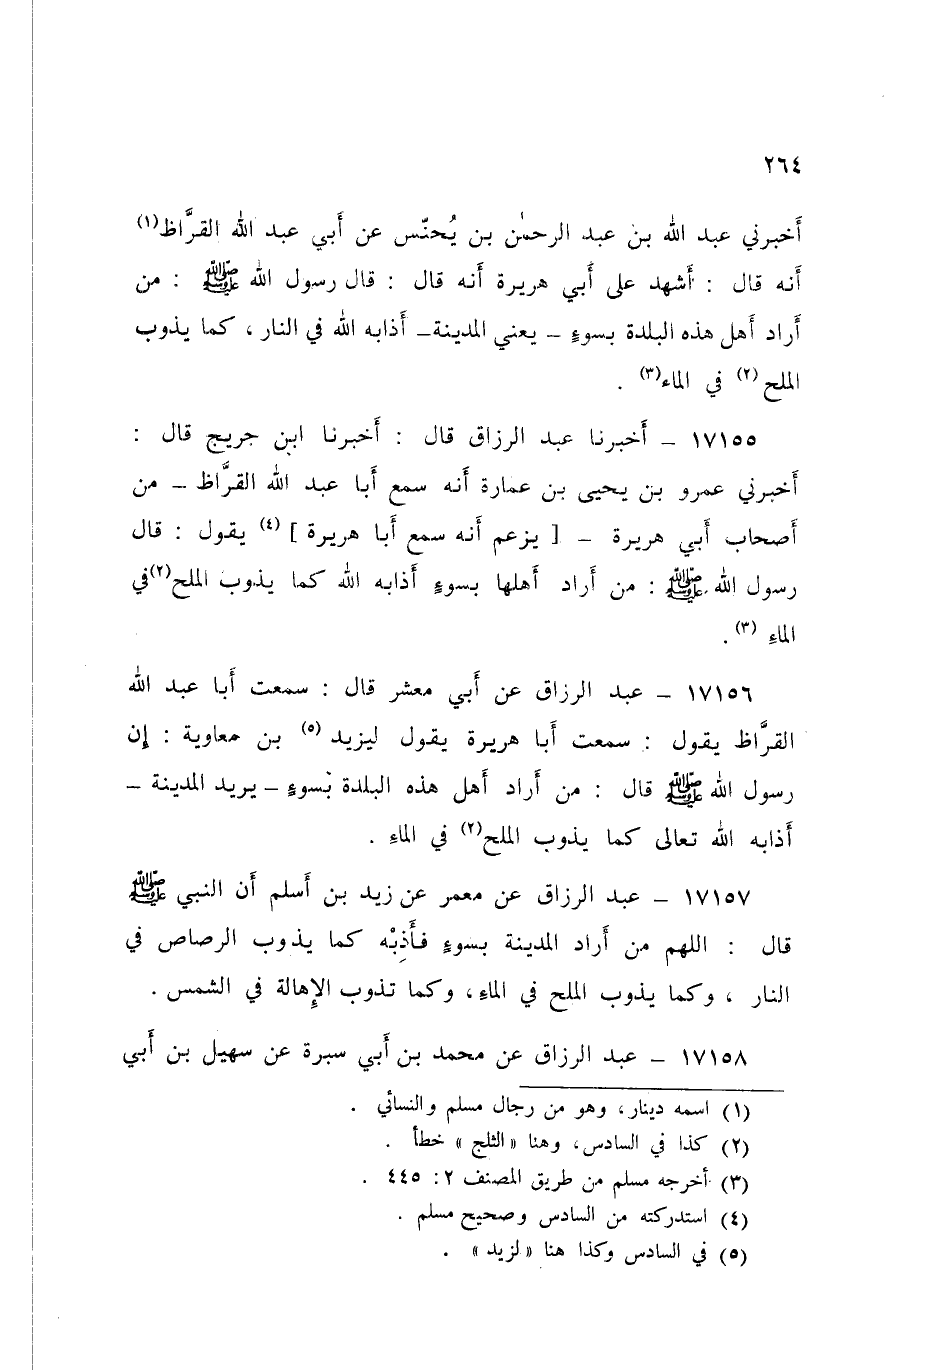 ٢٦٤
أخبرني عبد الله بن عبد الرحمٰن بن يُحنّس عن أبي عبد الله القرَّاظ(١)
أنه قال : أشهد على أبي هريرة أنه قال : قال رسول الله ﷺ : من
أراد أهل هذه البلدة بسوءٍ – يعني المدينة– أذابه الله في النار ، كما يذوب
الملح(٢) في الماء(٣) .
١٧١٥٥ – أخبرنا عبد الرزاق قال : أخبرنا ابن جريج قال :
أخبرني عمرو بن يحيى بن عمارة أنه سمع أبا عبد الله القرَّاظ – من
أصحاب أبي هريرة – [ يزعم أنه سمع أبا هريرة ](٤) يقول : قال
رسول الله ﷺ : من أراد أهلها بسوءٍ أذابه الله كما يذوب الملح(٢)في
الماءِ (٣) .
١٧١٥٦ – عبد الرزاق عن أبي معشر قال : سمعت أبا عبد الله
القرَّاظ يقول : سمعت أبا هريرة يقول ليزيد(٥) بن معاوية : إن
رسول الله ﷺ قال : من أراد أهل هذه البلدة بسوءٍ – يريد المدينة –
أذابه الله تعالى كما يذوب الملح(٢) في الماءِ .
١٧١٥٧ – عبد الرزاق عن معمر عن زيد بن أسلم أن النبي ﷺ
قال : اللهم من أراد المدينة بسوءٍ فأَذِبْه كما يذوب الرصاص في
النار ، وكما يذوب الملح في الماءِ ، وكما تذوب الإهالة في الشمس .
١٧١٥٨ – عبد الرزاق عن محمد بن أبي سبرة عن سهيل بن أبي
(١) اسمه دينار، وهو من رجال مسلم والنسائي .
(٢) كذا في السادس، وهنا «الثلج» خطأ .
(٣) أخرجه مسلم من طريق المصنف ٢: ٤٤٥ .
(٤) استدركته من السادس وصحيح مسلم .
(٥) في السادس وكذا هنا «لزيد» .